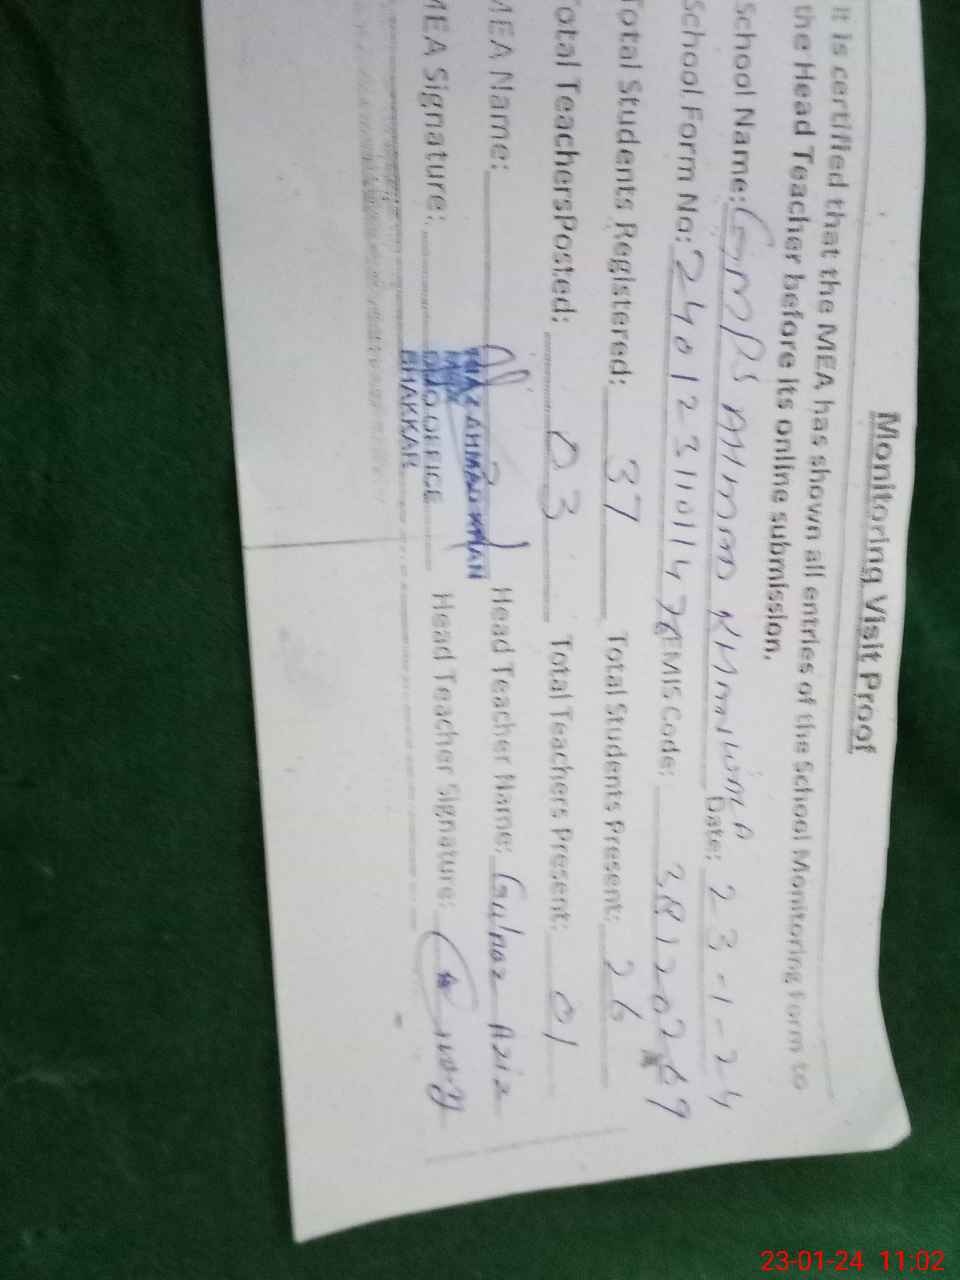 Monitoring Visit Proof
It is certified that the MEA has shown all entries of the School Monitoring Form to
the Head Teacher before its online submission.
School Name: GMPS AHMAD KHANWALA Date: 23-1-24
School Form No: 24012311011476 EMIS Code: 38120269
Total Students Registered: 37 Total Students Present: 26
Total TeachersPosted: 03 Total Teachers Present: 01
MEA Name: AHMAD KHAN Head Teacher Name: Gulnaz Aziz
MEA Signature: OFFICE Head Teacher Signature:
BHAKKAR
23-01-24 11:02